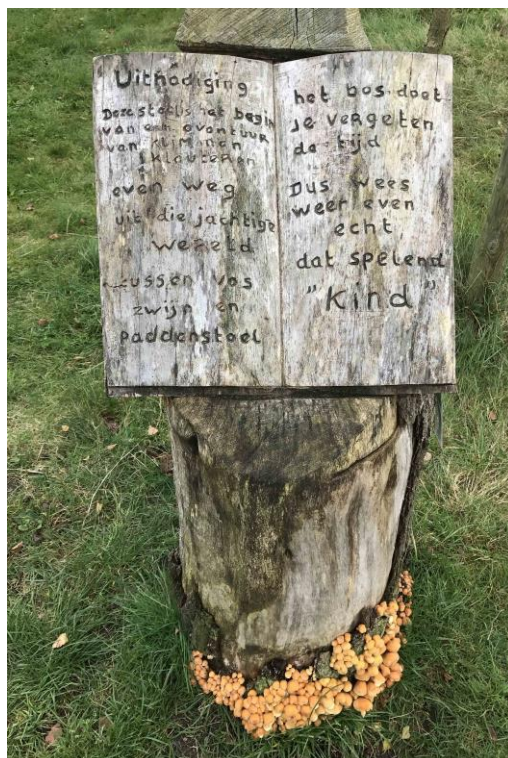 Uitnodiging
Deze stat is het begin
van een avontuur
van klimmen
klauteren
even weg
uit die jachtige
wereld
tussen vos
zwijn en
paddenstoel
het bos doet
je vergeten
de tijd
Dus wees
weer even
echt,
dat spelend
"Kind"